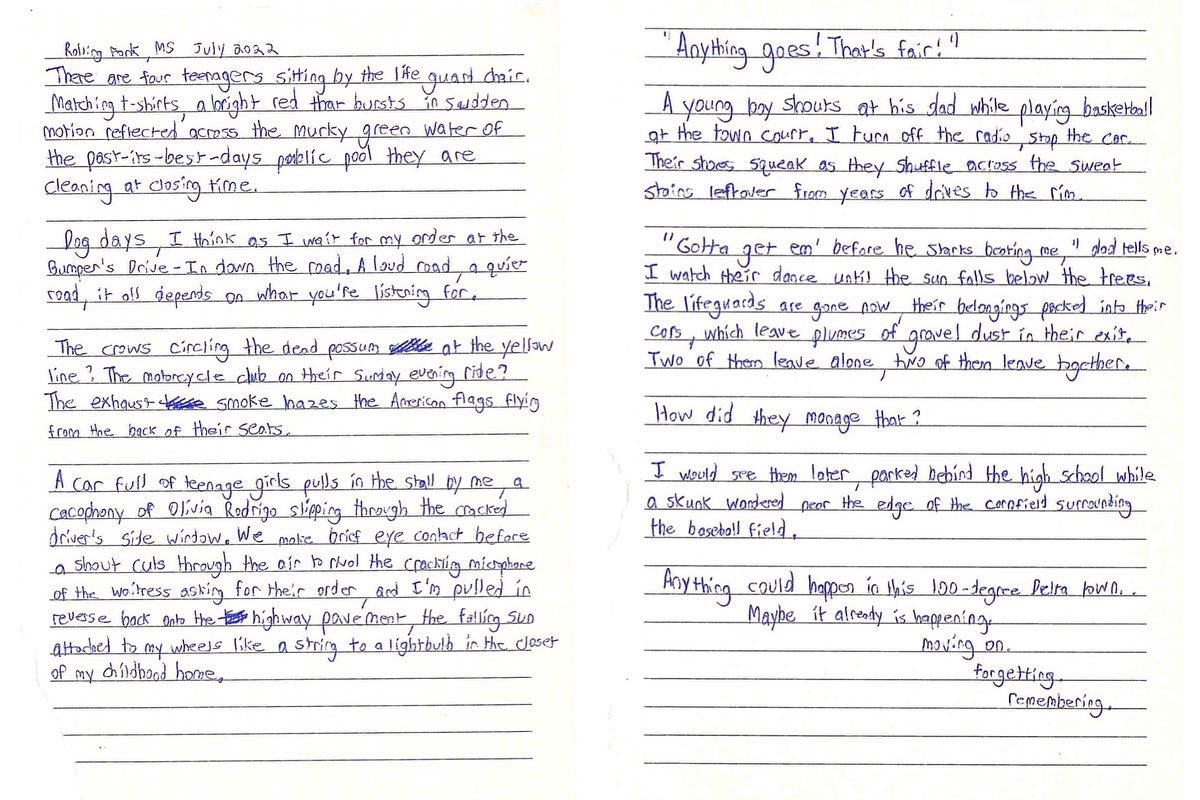 Rolling Fork, MS July 2022
There are four teenagers sitting by the life guard chair.
Matching t-shirts, a bright red that bursts in sudden
motion reflected across the murky green water of
the past-its-best-days public pool they are
cleaning at closing time.
Dog days, I think as I wait for my order at the
Bumper's Drive-In down the road. A loud road, a quiet
road, it all depends on what you're listening for.
The crows circling the dead possum at the yellow
line? The motorcycle club on their Sunday evening ride?
The exhaust smoke hazes the American flags flying
from the back of their seats.
A car full of teenage girls pulls in the stall by me, a
cacophony of Olivia Rodrigo slipping through the cracked
driver's side window. We make brief eye contact before
a shout cuts through the air to rival the crackling microphone
of the waitress asking for their order, and I'm pulled in
reverse back onto the highway pavement, the falling sun
attached to my wheels like a string to a lightbulb in the closet
of my childhood home.
"Anything goes! That's fair!"
A young boy shouts at his dad while playing basketball
at the town court. I turn off the radio, stop the car.
Their shoes squeak as they shuffle across the sweat
stains leftover from years of drives to the rim.
"Gotta get em' before he starts beating me," dad tells me.
I watch their dance until the sun falls below the trees.
The lifeguards are gone now, their belongings packed into their
cars, which leave plumes of gravel dust in their exit.
Two of them leave alone, two of them leave together.
How did they manage that?
I would see them later, parked behind the high school while
a skunk wandered near the edge of the cornfield surrounding
the baseball field.
Anything could happen in this 100-degree Delta town..
Maybe it already is happening.
moving on.
forgetting.
remembering.